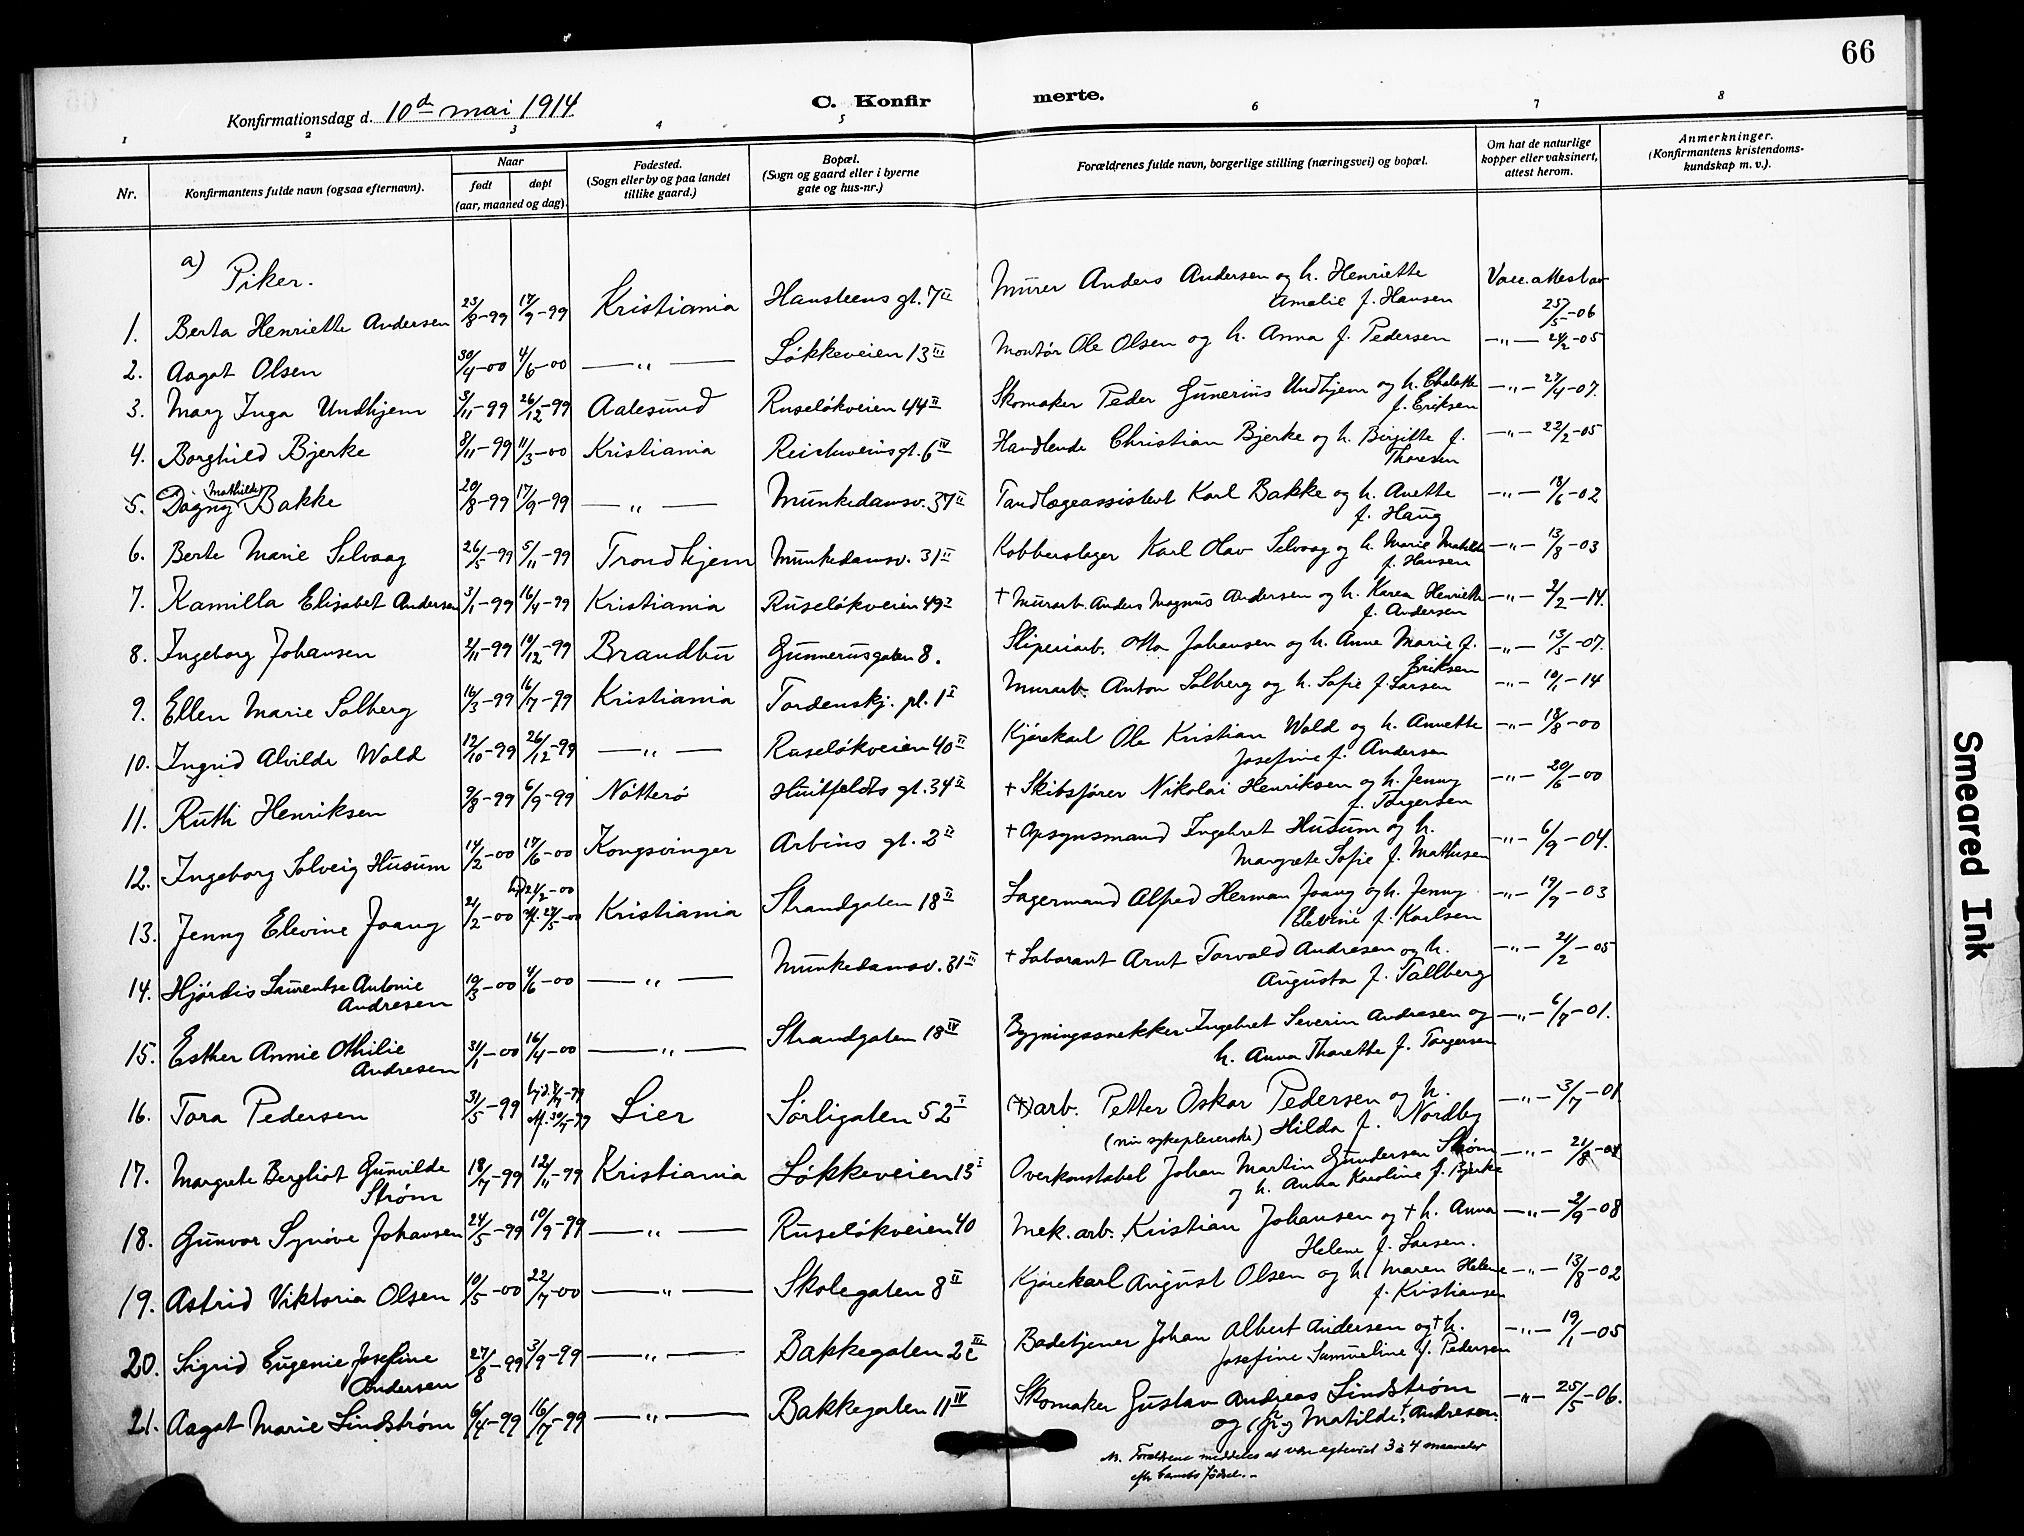 66
Konfirmationsdag d. 10de mai 1914
C. Konfir merte.
1 2 3 4 5 6 7 8
Nr.
Konfirmantens fulde navn (ogsaa efternavn).
Naar
født døpt
(aar, maaned og dag).
Fødested.
(Sogn eller by og paa landet
tillike gaard.)
Bopæl.
(Sogn og gaard eller i byerne
gate og hus-nr.)
Forældrenes fulde navn, borgerlige stilling (næringsvei) og bopæl.
Om hat de naturlige
kopper eller vaksinert,
attest herom.
Anmerkninger.
(Konfirmantens kristendoms-
kundskap m. v.).
a) Piker.
1. Berta Henriette Andersen 23/8-99 17/9-99 Kristiania Hansteens gt. 7 II Murer Anders Andersen og h. Henriette Vacc. attest av
Amalie f. Hansen 25/5-06
2. Aagot Olsen 30/4-00 4/6-00 —„— Løkkeveien 13 III Montør Ole Olsen og h. Anna f. Pedersen —„— 24/2-05
3. Mary Inga Undhjem 3/11-99 26/12-99 Aalesund Ruseløkveien 44 II Skomaker Peder Gunerius Undhjem og h. —„— 27/4-07.
f. Eriksen
4. Borghild Bjerke 8/11-99 11/3-00 Kristiania gt. 6 IV Handlende Christian Bjerke og h. Birgitte f. —„— 22/2-05
Thoresen
5. Dagny Mathilde Bakke 20/8-99 17/9-99 —„— Munkedamsv. 37 II Tandlægeassistent Karl Bakke og h. Anette —„— 18/6-02
f. Haug
6. Berte Marie Selvaag 26/5-99 5/11-99 Trondhjem Munkedamsv. 31 II Kobberslager Karl Olav Selvaag og h. Marie Matilde —„— 13/8-03
f. Hansen
7. Kamilla Elisabet Andersen 3/1-99 16/4-99 Kristiania Ruseløkveien 49 † Murarb. Anders Magnus Andersen og h. Karen Henriette —„— 2/2-14.
f. Andersen
8. Ingeborg Johansen 2/11-99 10/12-99 Brandbu Gunnerusgaten 8. Sliperiarb. Otto Johansen og h. Anne Marie f. —„— 13/5-07.
Eriksen
9. Ellen Marie Solberg 16/3-99 16/7-99 Kristiania Tordenskj. pl. 1 I Murarb. Anton Solberg og h. Sofie f. Larsen —„— 10/1-14
10. Ingrid Alvilde Wold 12/10-99 26/12-99 —„— Ruseløkveien 40 II Kjørekarl Ole Kristian Wold og h. Annette —„— 18/8-00
Josefine f. Andersen
11. Ruth Henriksen 9/8-99 6/9-99 Nøtterø Huitfeldts gt. 34 II † Skibsfører Nikolai Henriksen og h. Jenny —„— 20/6-00
f. Torgersen
12. Ingeborg Solveig Husum 14/2-00 17/6-00 Kongsvinger Arbins gt. 3 II † Opsynsmand Ingebret Husum og h. —„— 6/9-04.
Margrete Sofie f. Mathisen
13. Jenny Elevine Joang 21/2-00 hjd. 24/2-00 Kristiania Strandgaten 18 II Lagermand Alfred Herman Joang og h. Jenny —„— 19/9-03
27/5-00 Elevine f. Karlsen
14. Hjørdis Laurentse Antonie 19/3-00 4/6-00 —„— Munkedamsv. 31 II † Laborant Arnt Torvald Andresen og h. —„— 21/2-05
Andresen Augusta f. Tallberg
15. Esther Annie Othilie 31/1-00 16/4-00 —„— Strandgaten 18 IV Bygningssnekker Ingebret Severin Andresen og —„— 6/7-01.
Andresen h. Anna Thorette f. Torgersen
16. Tora Pedersen 31/5-99 Lier Sørligaten 52 I (†) arb. Petter Oskar Pedersen og h. —„— 3/7-01
(nu sykepleierske) Hilda f. Nordby
17. Margrete Bergliot Gunvilde 18/7-99 12/11-99 Kristiania Løkkeveien 13 I Overkonstabel Johan Martin Gundersen Strøm —„— 21/8-04
Strøm og h. Anna Karoline f. Bjerke
18. Gunvor Synøve Johansen 24/5-99 10/9-99 —„— Ruseløkveien 40 Mek. arb. Kristian Johansen og † h. Anna —„— 2/9-08
Helene f. Larsen.
19. Astrid Viktoria Olsen 10/5-00 22/7-00 —„— Skolegaten 8 II Kjørekarl August Olsen og h. Maren Helene —„— 13/8-02
f. Kristiansen
20. Sigrid Eugenie Josefine 27/8-99 3/9-99 —„— Bakkegaten 2c III Badetjener Johan Albert Andersen og † h. —„— 19/1-05
Andersen Josefine Samueline f. Pedersen
21. Aagot Marie Lindstrøm 6/4-99 16/7-99 —„— Bakkegaten 11 IV Skomaker Gustav Andreas Lindstrøm —„— 25/5-06.
og Matilde Andresen
Forældrene meddeles at være egteviet 3 à 4 maaneder
efter barnets fødsel.
Smeared Ink